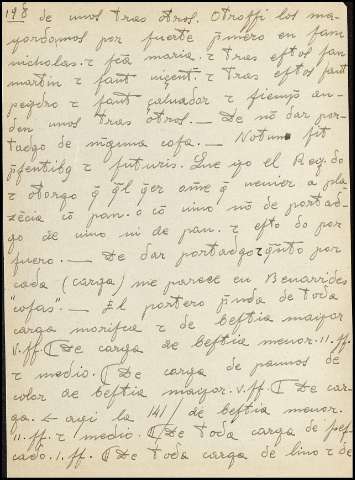 148 de unos tras otros. Otroffi los ma-
yordomos por fuerte p̃mero en fam
nicholas. τ fc̃a maria. τ tras eftos fan
martin τ fant viçent. τ tras eftos fant
pegdro τ fant faluador τ fiemp̃ an-
den unos tras otros. — De nõ dar por-
tadgo de ninguna cofa. — Notum fit
p̃fentibq τ futuris. Que yo el Rey do
τ otorgo q̃ q̃l q̃er om̃e q̃ venier a pla
zẽcia cõ pan. o cõ vino nõ de portad-
go de vino ni de pan. τ efto do por
fuero. — De dar portadgo τ q̃nto por
cada (carga) me parece en Benavides
"cofas". — El portero p̃nda de toda
carga morifca τ de beftia mayor
v. ff. ₵ De carga de beftia menor. 11. ff.
τ medio. ₵ De carga de pannos de
color de beftia mayor. v. ff. ₵ De car-
ga. ← aqi la 141 / de beftia menor.
11. ff. τ medio. ₵ De toda carga de pef
cado. 1. ff. ₵ De toda carga de lino τ de